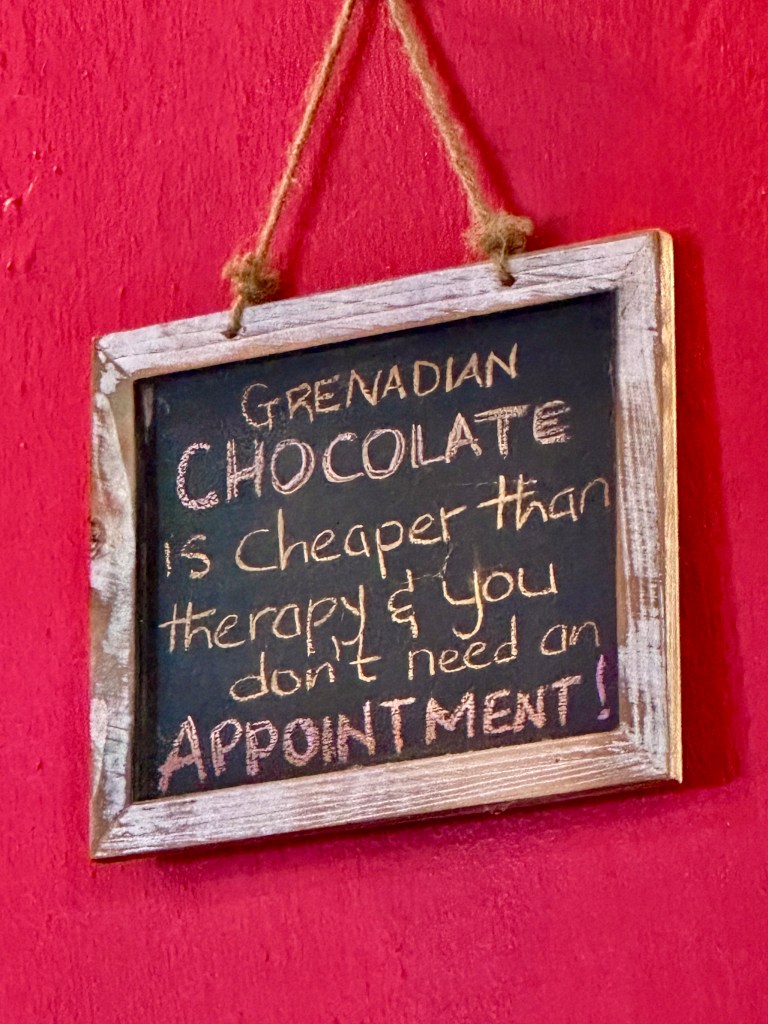 GRENADIAN
CHOCOLATE
is cheaper than
therapy & you
don't need an
APPOINTMENT!